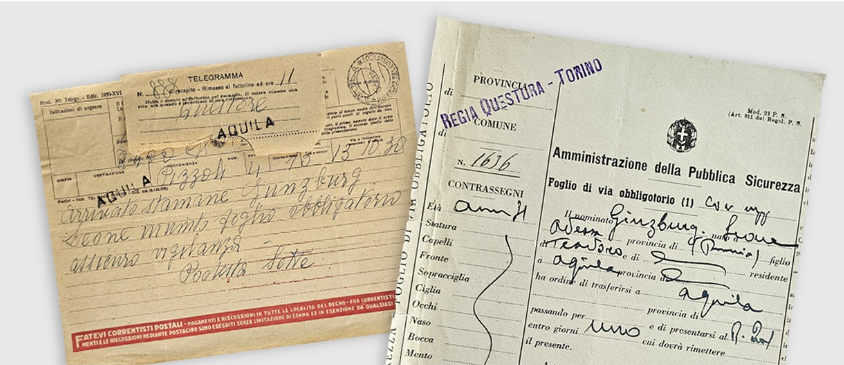 Mod. 30 Telegr. - Ediz. 1939-XVI
Indicazioni di urgenza
TELEGRAMMA
N. 888 di recapito - Rimesso al fattorino ad ore 11
Questore
AQUILA
AQUILA
Pizzoli 4 13 13 10.30
Arrivato stamane Ginzburg
Leone munito foglio obbligatorio
assicuro vigilanza
Podestà Sette
FATEVI CORRENTISTI POSTALI - PAGAMENTI E RISCOSSIONI IN TUTTE LE LOCALITÀ DEL REGNO - FRA CORRENTISTI
LE RISCOSSIONI MEDIANTE POSTAGIRO SONO ESEGUITI SENZA LIMITAZIONE DI SOMMA ED IN ESENZIONE DA QUALSIASI
FOGLIO DI VIA OBBLIGATORIO
PROVINCIA
di
REGIA QUESTURA - TORINO
COMUNE
di
N. 1636
CONTRASSEGNI
Età anni 31
Statura
Capelli
Fronte
Sopracciglia
Ciglia
Occhi
Naso
Bocca
Mento
Mod. 23 P. S.
(Art. 311 del Regol. P. S.)
Amministrazione della Pubblica Sicurezza
Foglio di via obbligatorio (1)
Il nominato Ginzburg Leone
nato
Odessa provincia di (Russia) figlio
di Teodoro e di residente
a Aquila provincia
ha ordine di trasferirsi a Aquila
provincia di
passando per e di presentarsi al
entro giorni uno cui dovrà rimettere
il presente.